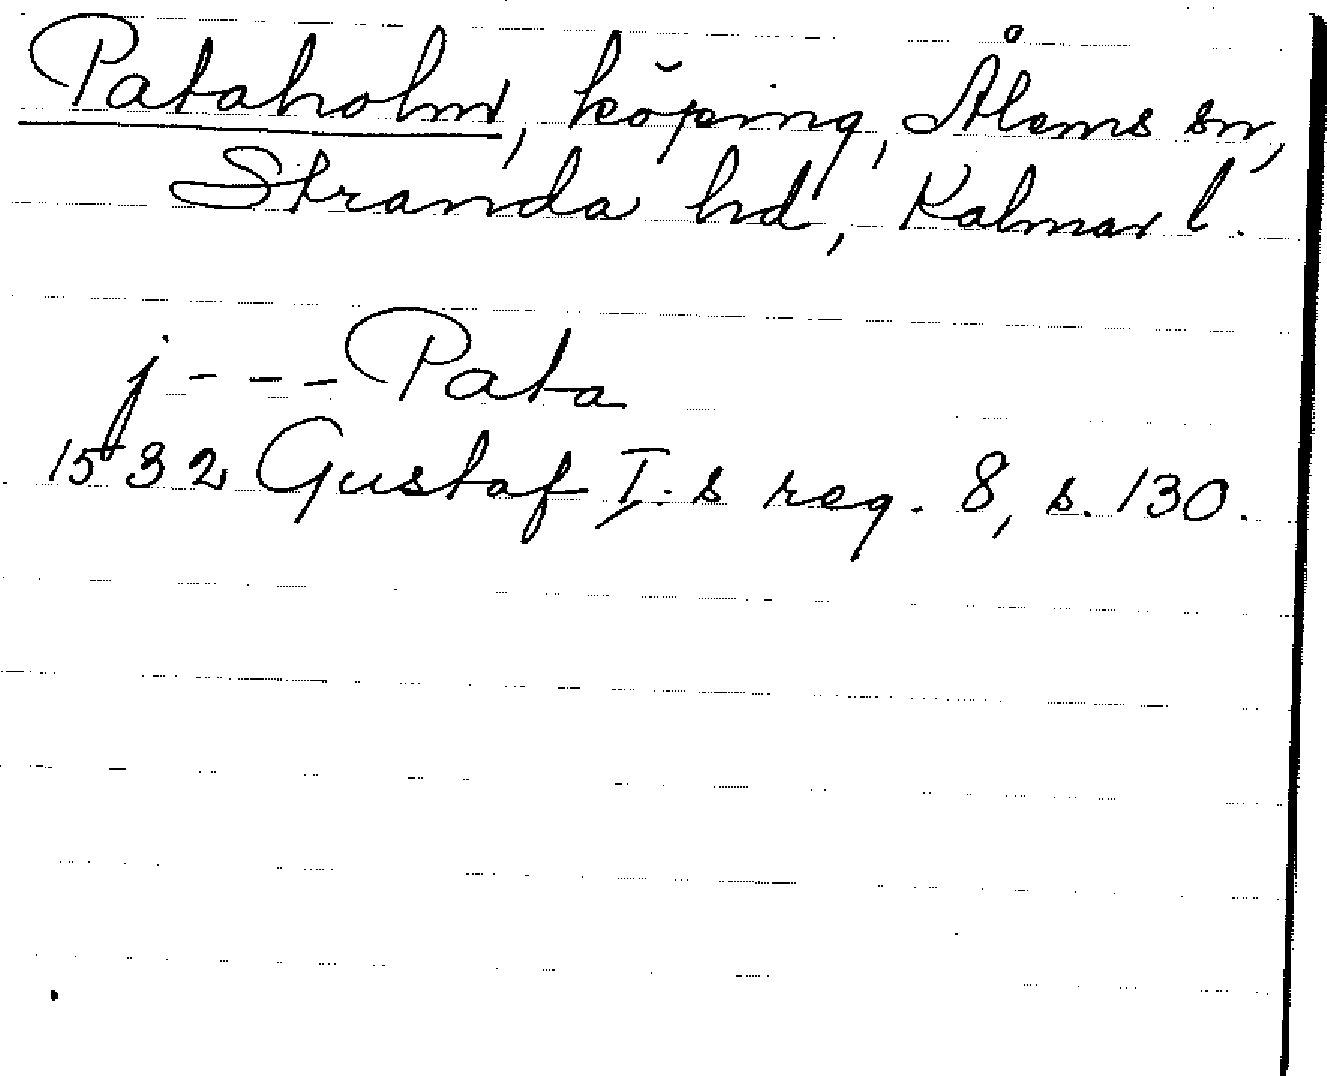 Pataholm, köping, Ålems sn,
Stranda hd, Kalmar l.
j - - - Pata
1532 Gustaf I:s reg. 8, s. 130.